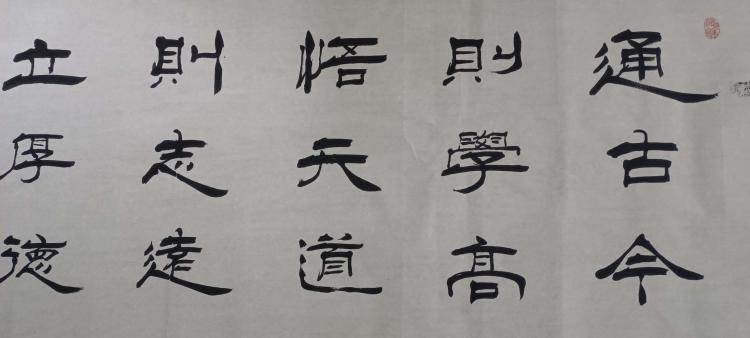 通古今
則學高
悟天道
則志遠
立厚德